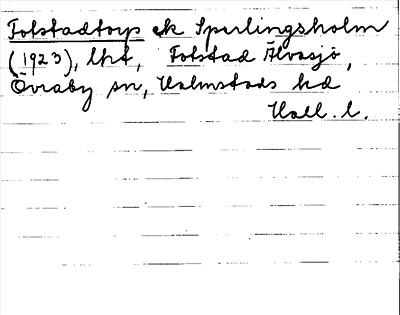 Tolstadtorp ek Sperlingsholm
(1923), lht, Tolstad Älvasjö,
Övraby sn, Halmstads hd
Hall. l.